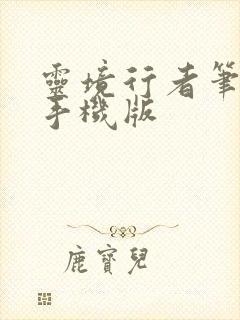 靈境行者筆
手機版
鹿寶兒